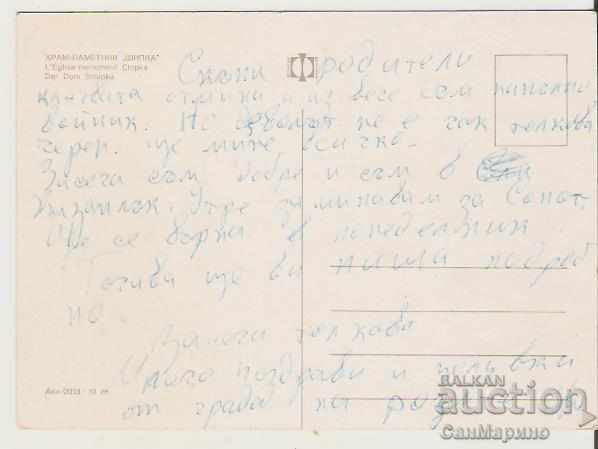 ХРАМ-ПАМЕТНИК „ШИПКА"
L'Eglise monument Chipka
Der Dom Schipka
Скъпи родители
клетвата отмина и аз вече съм напълно
войник. Но дяволът не е чак толкова
черен. ще мине всичко.
Засега съм добре и съм в
Казанлък. Утре заминавам за Сопот.
Ще се върна в понеделник.
Тогава ще ви пиша подроб
но.
Засега толкова
Много поздрави и целувки
от града на розите
BALKAN
auction
СанМарино